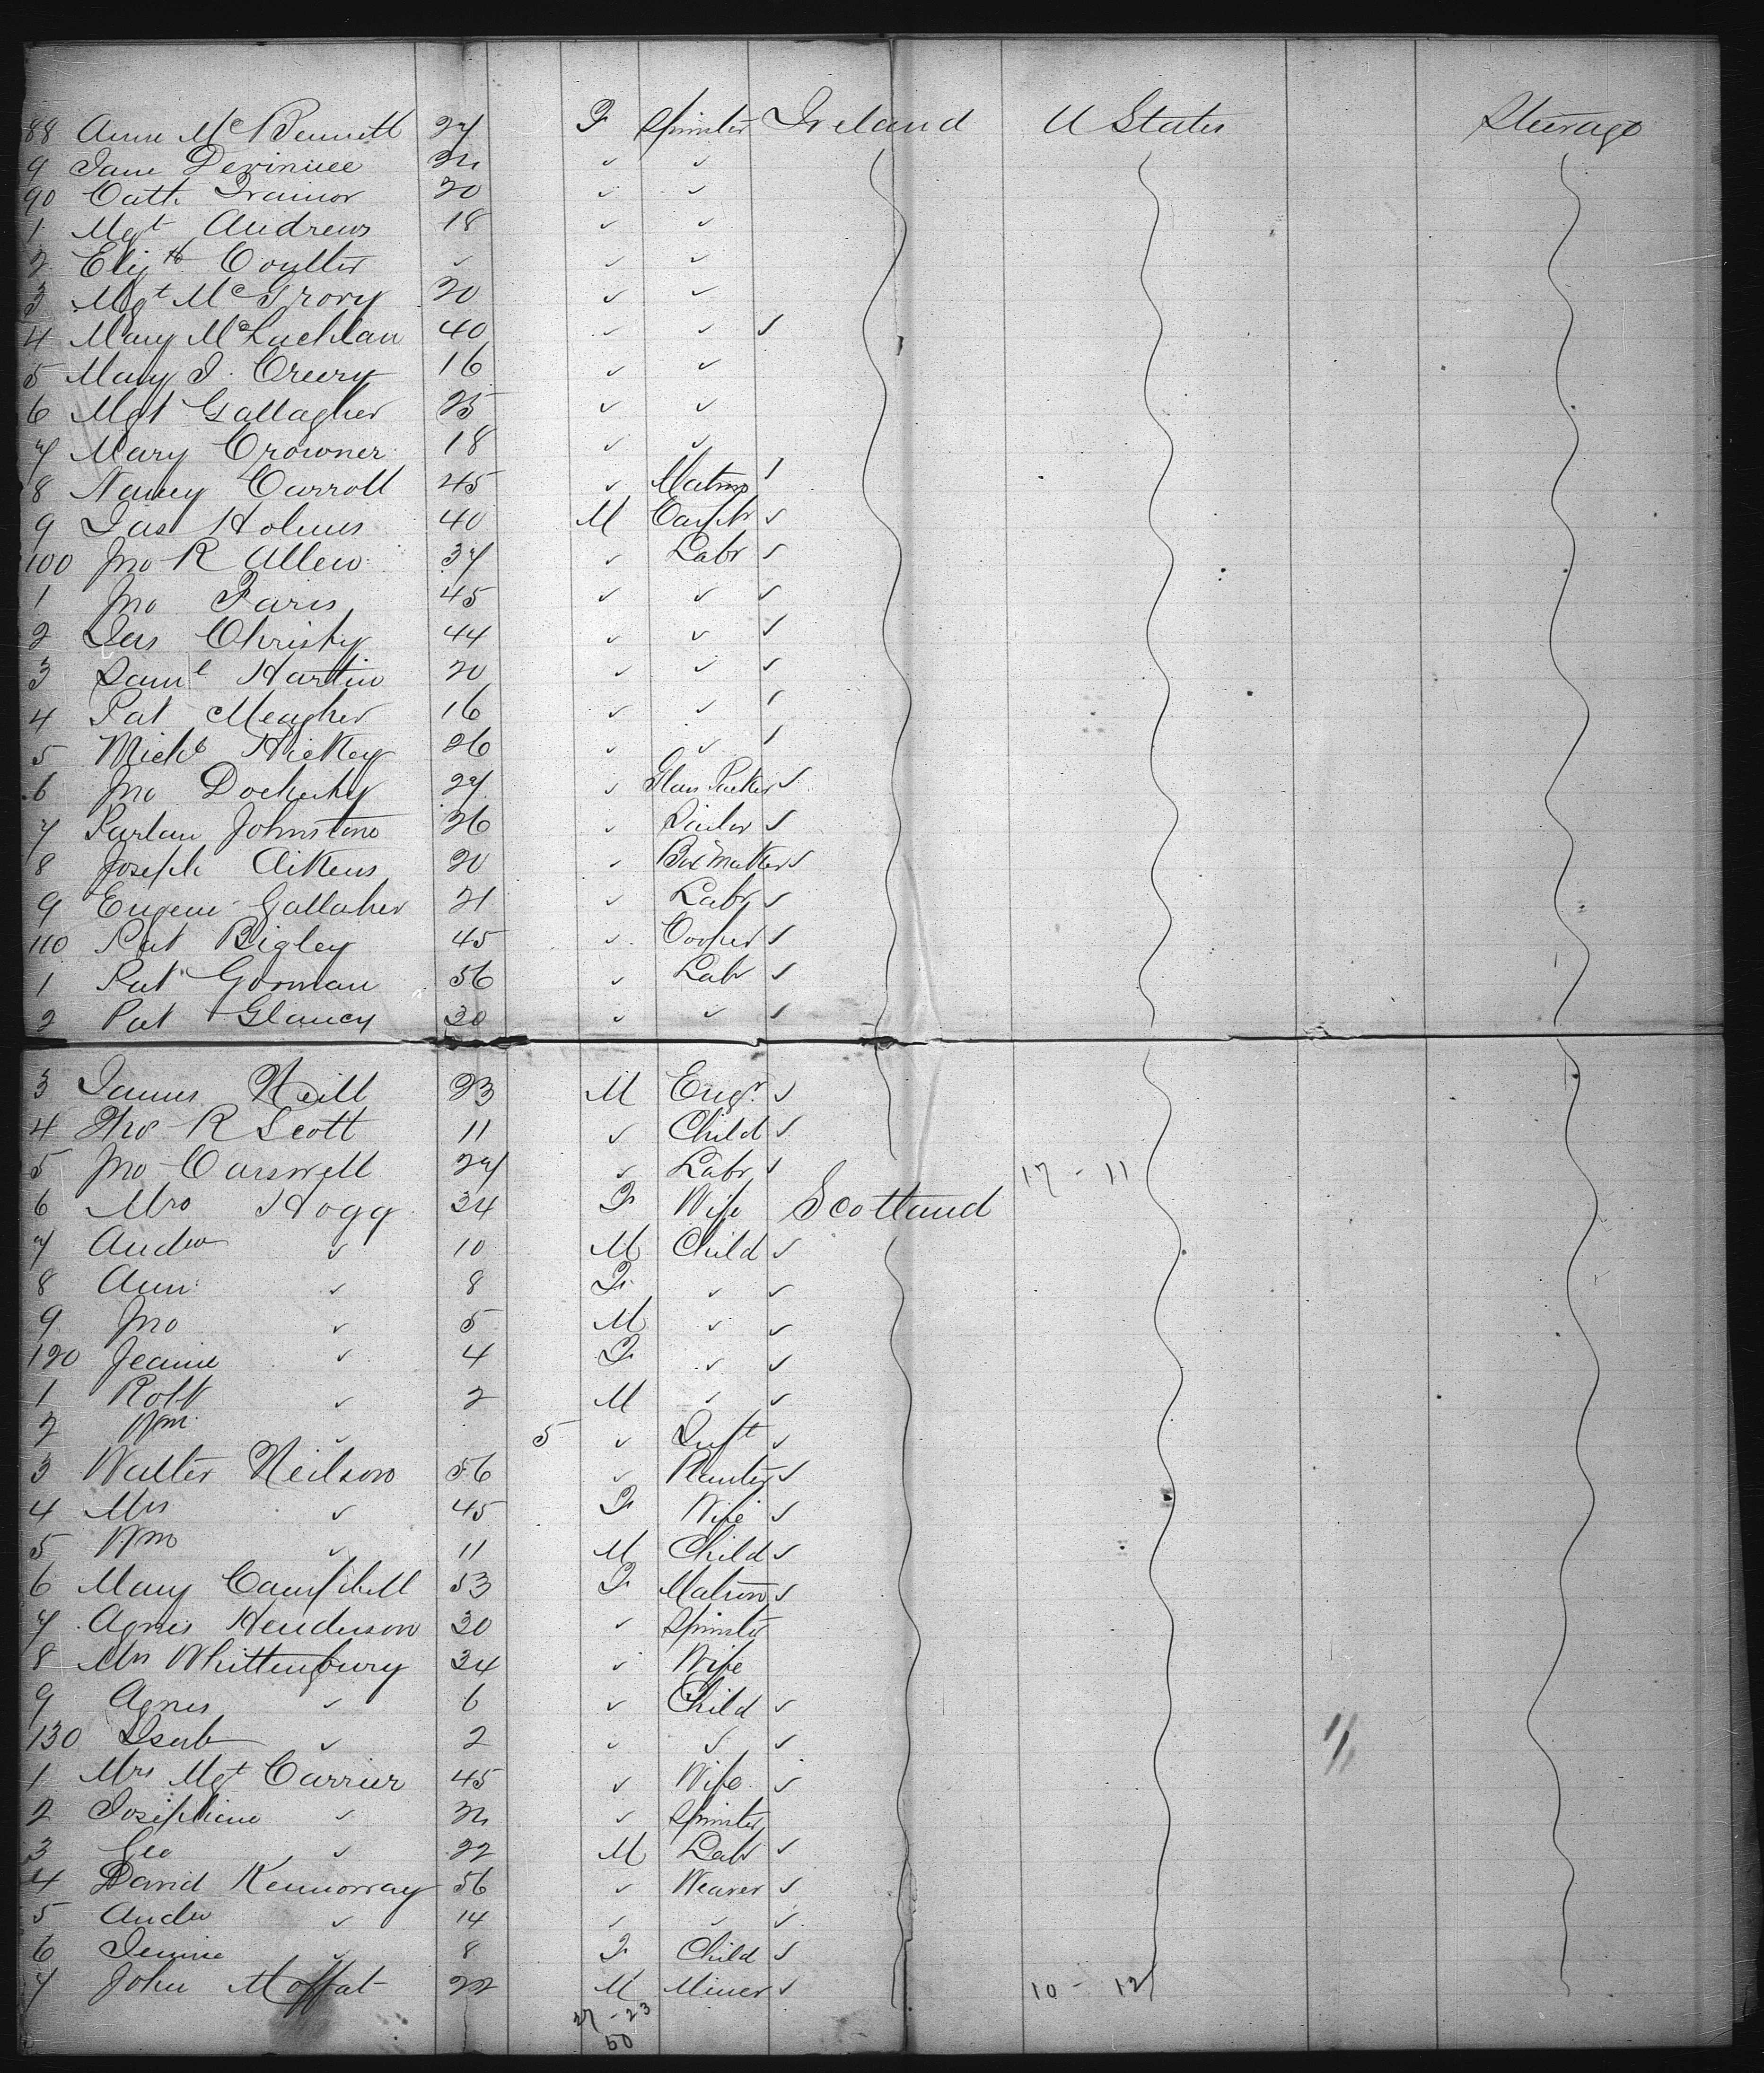 88 Anne McBennett 27 F Spinster Ireland U States Steerage
9 Jane 24 ✓ ✓
90 Cath Trainor 20 ✓ ✓
1 Mgt Andrews 18 ✓ ✓
2 Elizth Coulter ✓ ✓ ✓
3 Mgt McGrory 20 ✓ ✓
4 Mary McLachlan 40 ✓ ✓ ✓
5 Mary J. Creery 16 ✓ ✓
6 Mgt Gallagher 25 ✓ ✓
7 Mary Crowner 18 ✓ ✓
8 Nancy Carroll 45 ✓ Matron
9 Jas Holmes 40 M Carptr ✓
100 Jno R Allen 37 ✓ Labr ✓
1 Jno Faris 45 ✓ ✓ ✓
2 Jas Christy 44 ✓ ✓ ✓
3 Saml Hartin 20 ✓ ✓ ✓
4 Pat Meagher 16 ✓ ✓ ✓
5 Michl Hickey 26 ✓ ✓ ✓
6 Jno Docherty 27 ✓ Glass Packer ✓
7 Parlan Johnstone 26 ✓ ✓
8 Joseph Aikens 20 ✓ Box Maker ✓
9 Eugene Gallaher 21 ✓ Labr ✓
110 Pat Bigley 45 ✓ Cooper ✓
1 Pat Gorman 56 ✓ Labr ✓
2 Pat Glancy 30 ✓ ✓ ✓
3 James Neill 23 M Engr ✓
4 Thos R Scott 11 ✓ Child ✓
5 Jno Carswell 27 ✓ Labr ✓ 17 - 11
6 Mrs Hogg 34 F Wife Scotland
7 Andw ✓ 10 M Child ✓
8 Ann ✓ 8 F ✓ ✓
9 Jno ✓ 5 M ✓ ✓
120 Jeanie ✓ 4 F ✓ ✓
1 Robt ✓ 2 M ✓ ✓
2 Wm ✓ 5 ✓ Inft ✓
3 Walter Neilson 56 ✓ Planter ✓
4 Mrs ✓ 45 F Wife ✓
5 Wm ✓ 11 M Child ✓
6 Mary Campbell 53 F Matron ✓
7 Agnes Henderson 30 ✓ Spinster
8 Mrs Whittenbury 34 ✓ Wife
9 Agnes ✓ 6 ✓ Child ✓
130 Isab ✓ 2 ✓ ✓ ✓
1 Mrs Mgt Carrier 45 ✓ Wife ✓
2 Josephine ✓ 24 ✓ Spinster
3 Geo ✓ 22 M Labr ✓
4 David Kennorray 56 ✓ Weaver ✓
5 Andw ✓ 14 ✓ ✓ ✓
6 Jennie ✓ 8 F Child ✓
7 John Moffat 22 M Miner ✓ 10 - 12
27 - 23
50